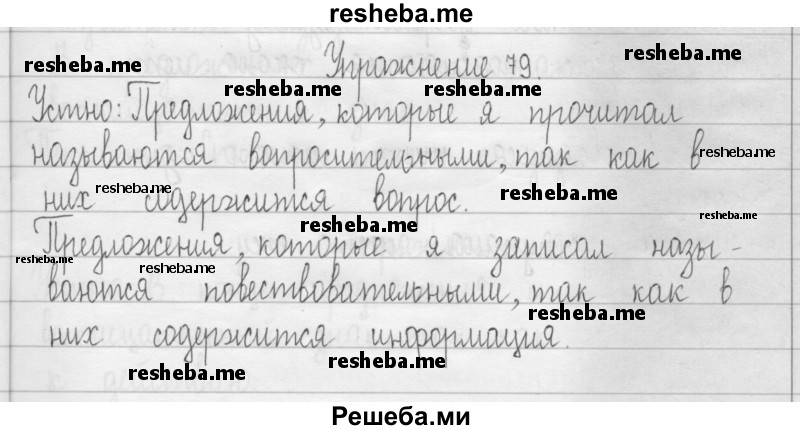 resheba.me
Упражнение 79.
resheba.me
resheba.me
resheba.me
resheba.me
Устно: Предложения, которые я прочитал
называются вопросительными, так как в
resheba.me
них содержится вопрос.
resheba.me
resheba.me
resheba.me
resheba.me
Предложения, которые я записал назы-
resheba.me
resheba.me
ваются повествовательными, так как в
resheba.me
них содержится информация.
resheba.me
resheba.me
Решеба.ми